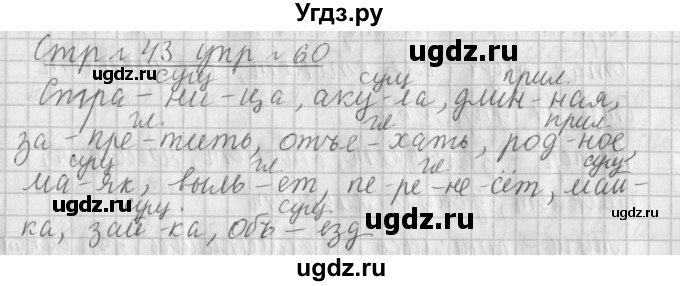 Угдз.ру
Стр № 43 упр № 60
сущ сущ прил.
Стра-ни-ца, аку-ла, длин-ная,
гл. гл прил.
за-пре-тить, отъе-хать, род-ное,
сущ гл. гл. сущ
ма-як, выль-ет, пе-ре-не-сёт, май-
сущ. сущ.
ка, зай-ка, объ-езд
ugdz.ru ugdz.ru ugdz.ru
ugdz.ru ugdz.ru
ugdz.ru ugdz.ru
ugdz.ru ugdz.ru ugdz.ru
ugdz.ru